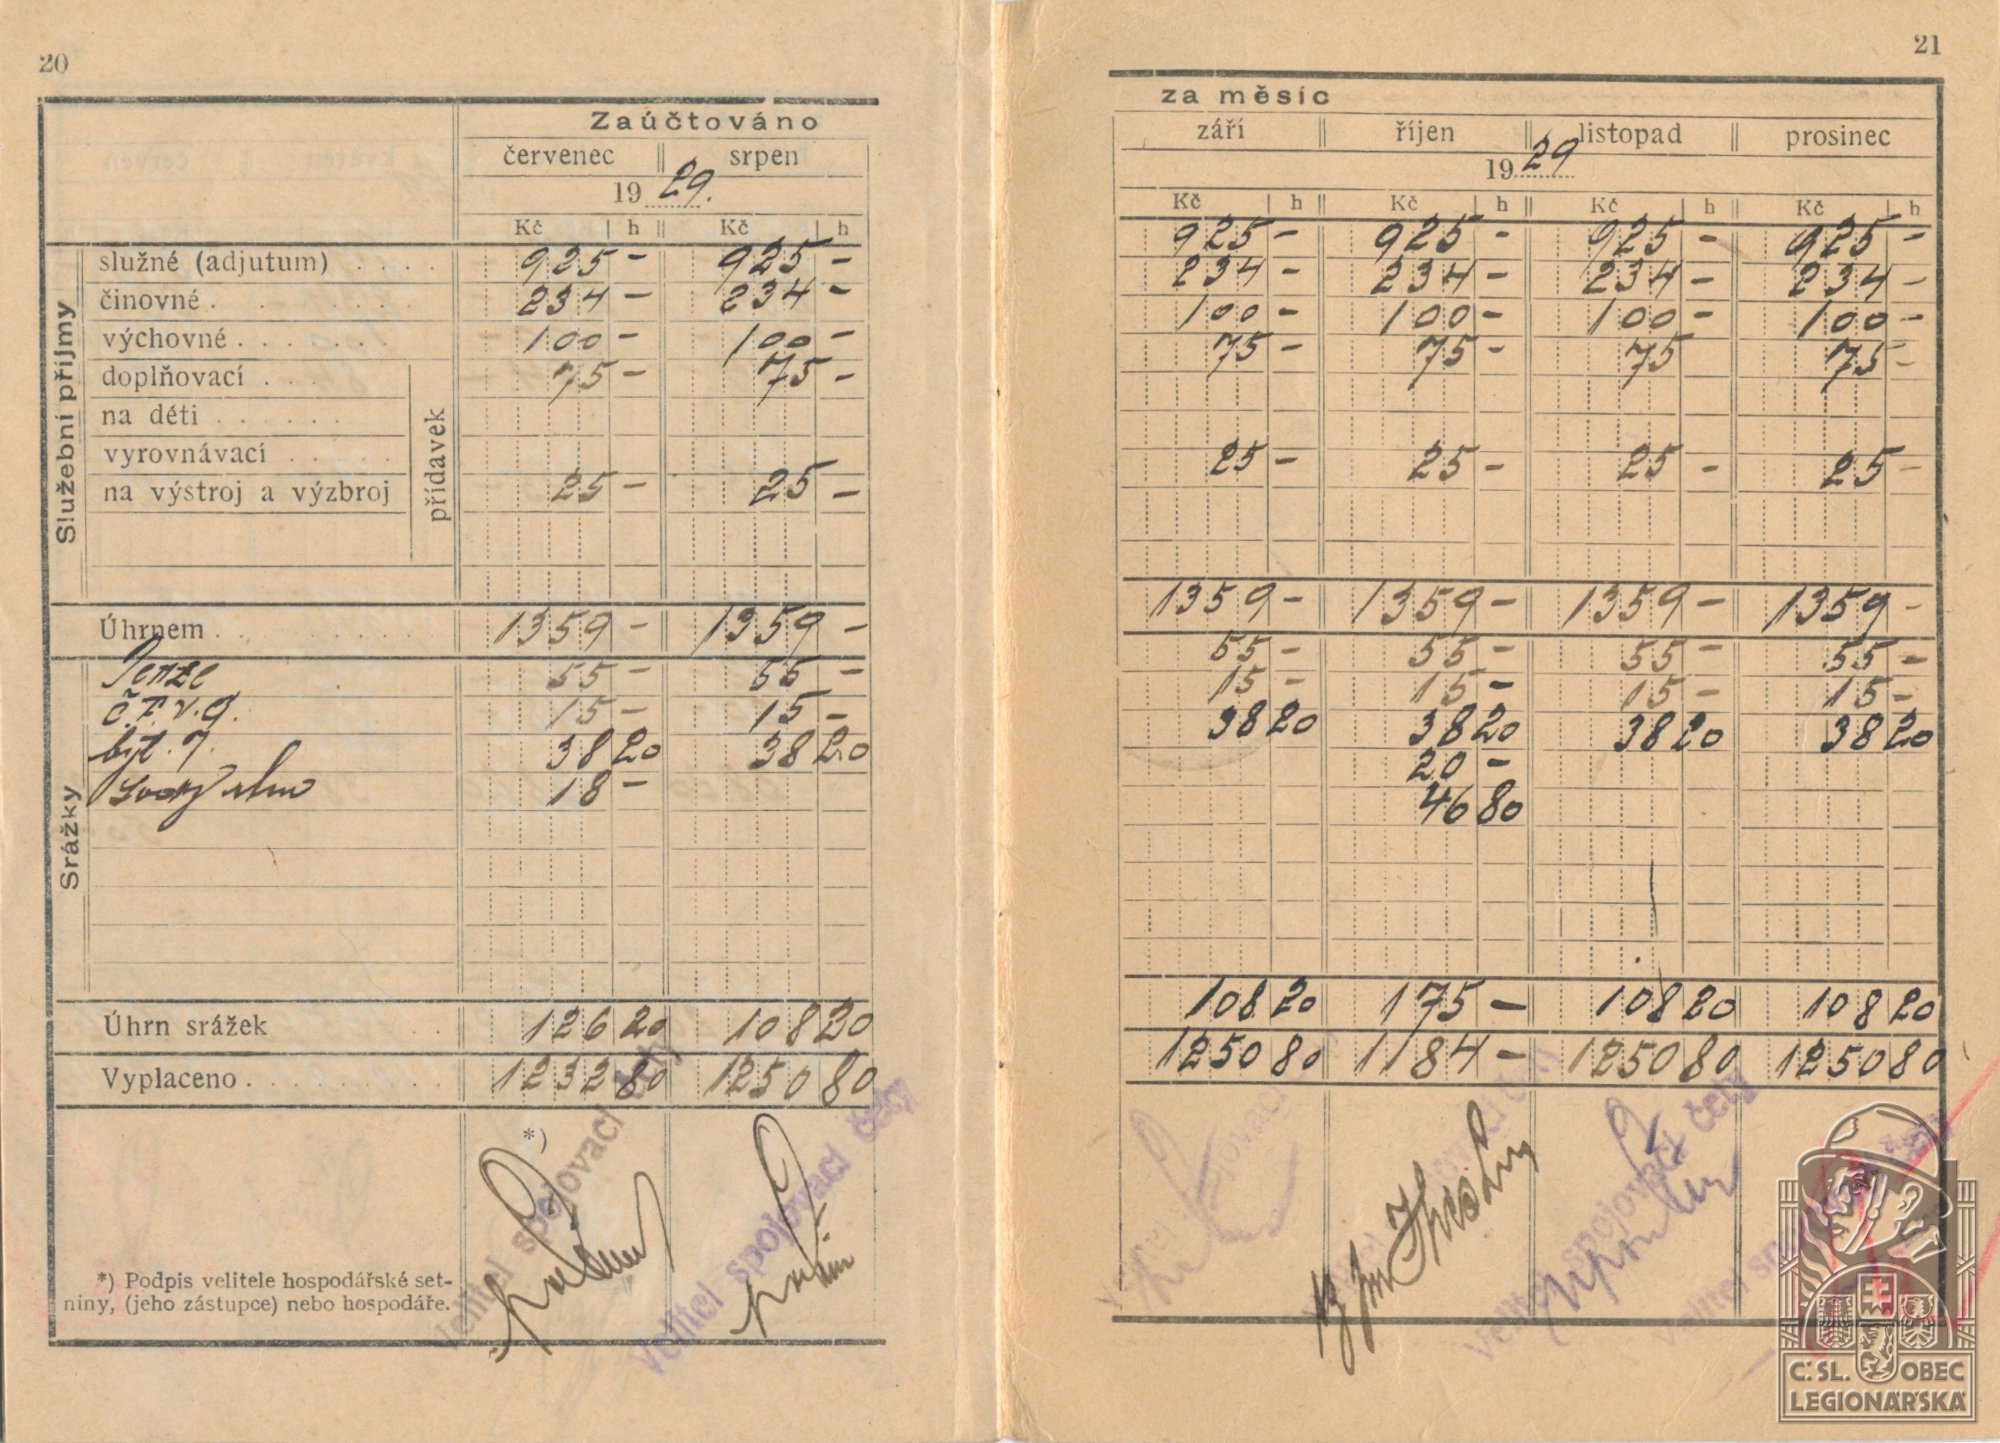 20
Zaúčtováno
červenec srpen
19 29.
Kč h Kč h
Služební příjmy
služné (adjutum) . . . . 925 – 925 –
činovné . . . . 234 – 234 –
výchovné . . . . 100 – 100 –
doplňovací . . . 75 – 75 –
na děti . . . . .
vyrovnávací . . . .
na výstroj a výzbroj 25 – 25 –
přídavek
Úhrnem . . . . 1359 – 1359 –
Srážky
Penze 55 – 55 –
15 – 15 –
byt. 38 20 38 20
18 –
Úhrn srážek . . 126 20 108 20
Vyplaceno . . . . 1232 80 1250 80
*)
Velitel spojovací čety
Velitel spojovací čety
*) Podpis velitele hospodářské set-
niny, (jeho zástupce) nebo hospodáře.
21
za měsíc
září říjen listopad prosinec
19 29
Kč h Kč h Kč h Kč h
925 – 925 – 925 – 925 –
234 – 234 – 234 – 234 –
100 – 100 – 100 – 100 –
75 – 75 – 75 75 –
25 – 25 – 25 – 25 –
1359 – 1359 – 1359 – 1359 –
55 – 55 – 55 – 55 –
15 – 15 – 15 – 15 –
38 20 38 20 38 20 38 20
20 –
46 80
108 20 175 – 108 20 108 20
1250 80 1184 – 1250 80 1250 80
Velitel spojovací čety
Č. SL. OBEC
LEGIONÁŘSKÁ